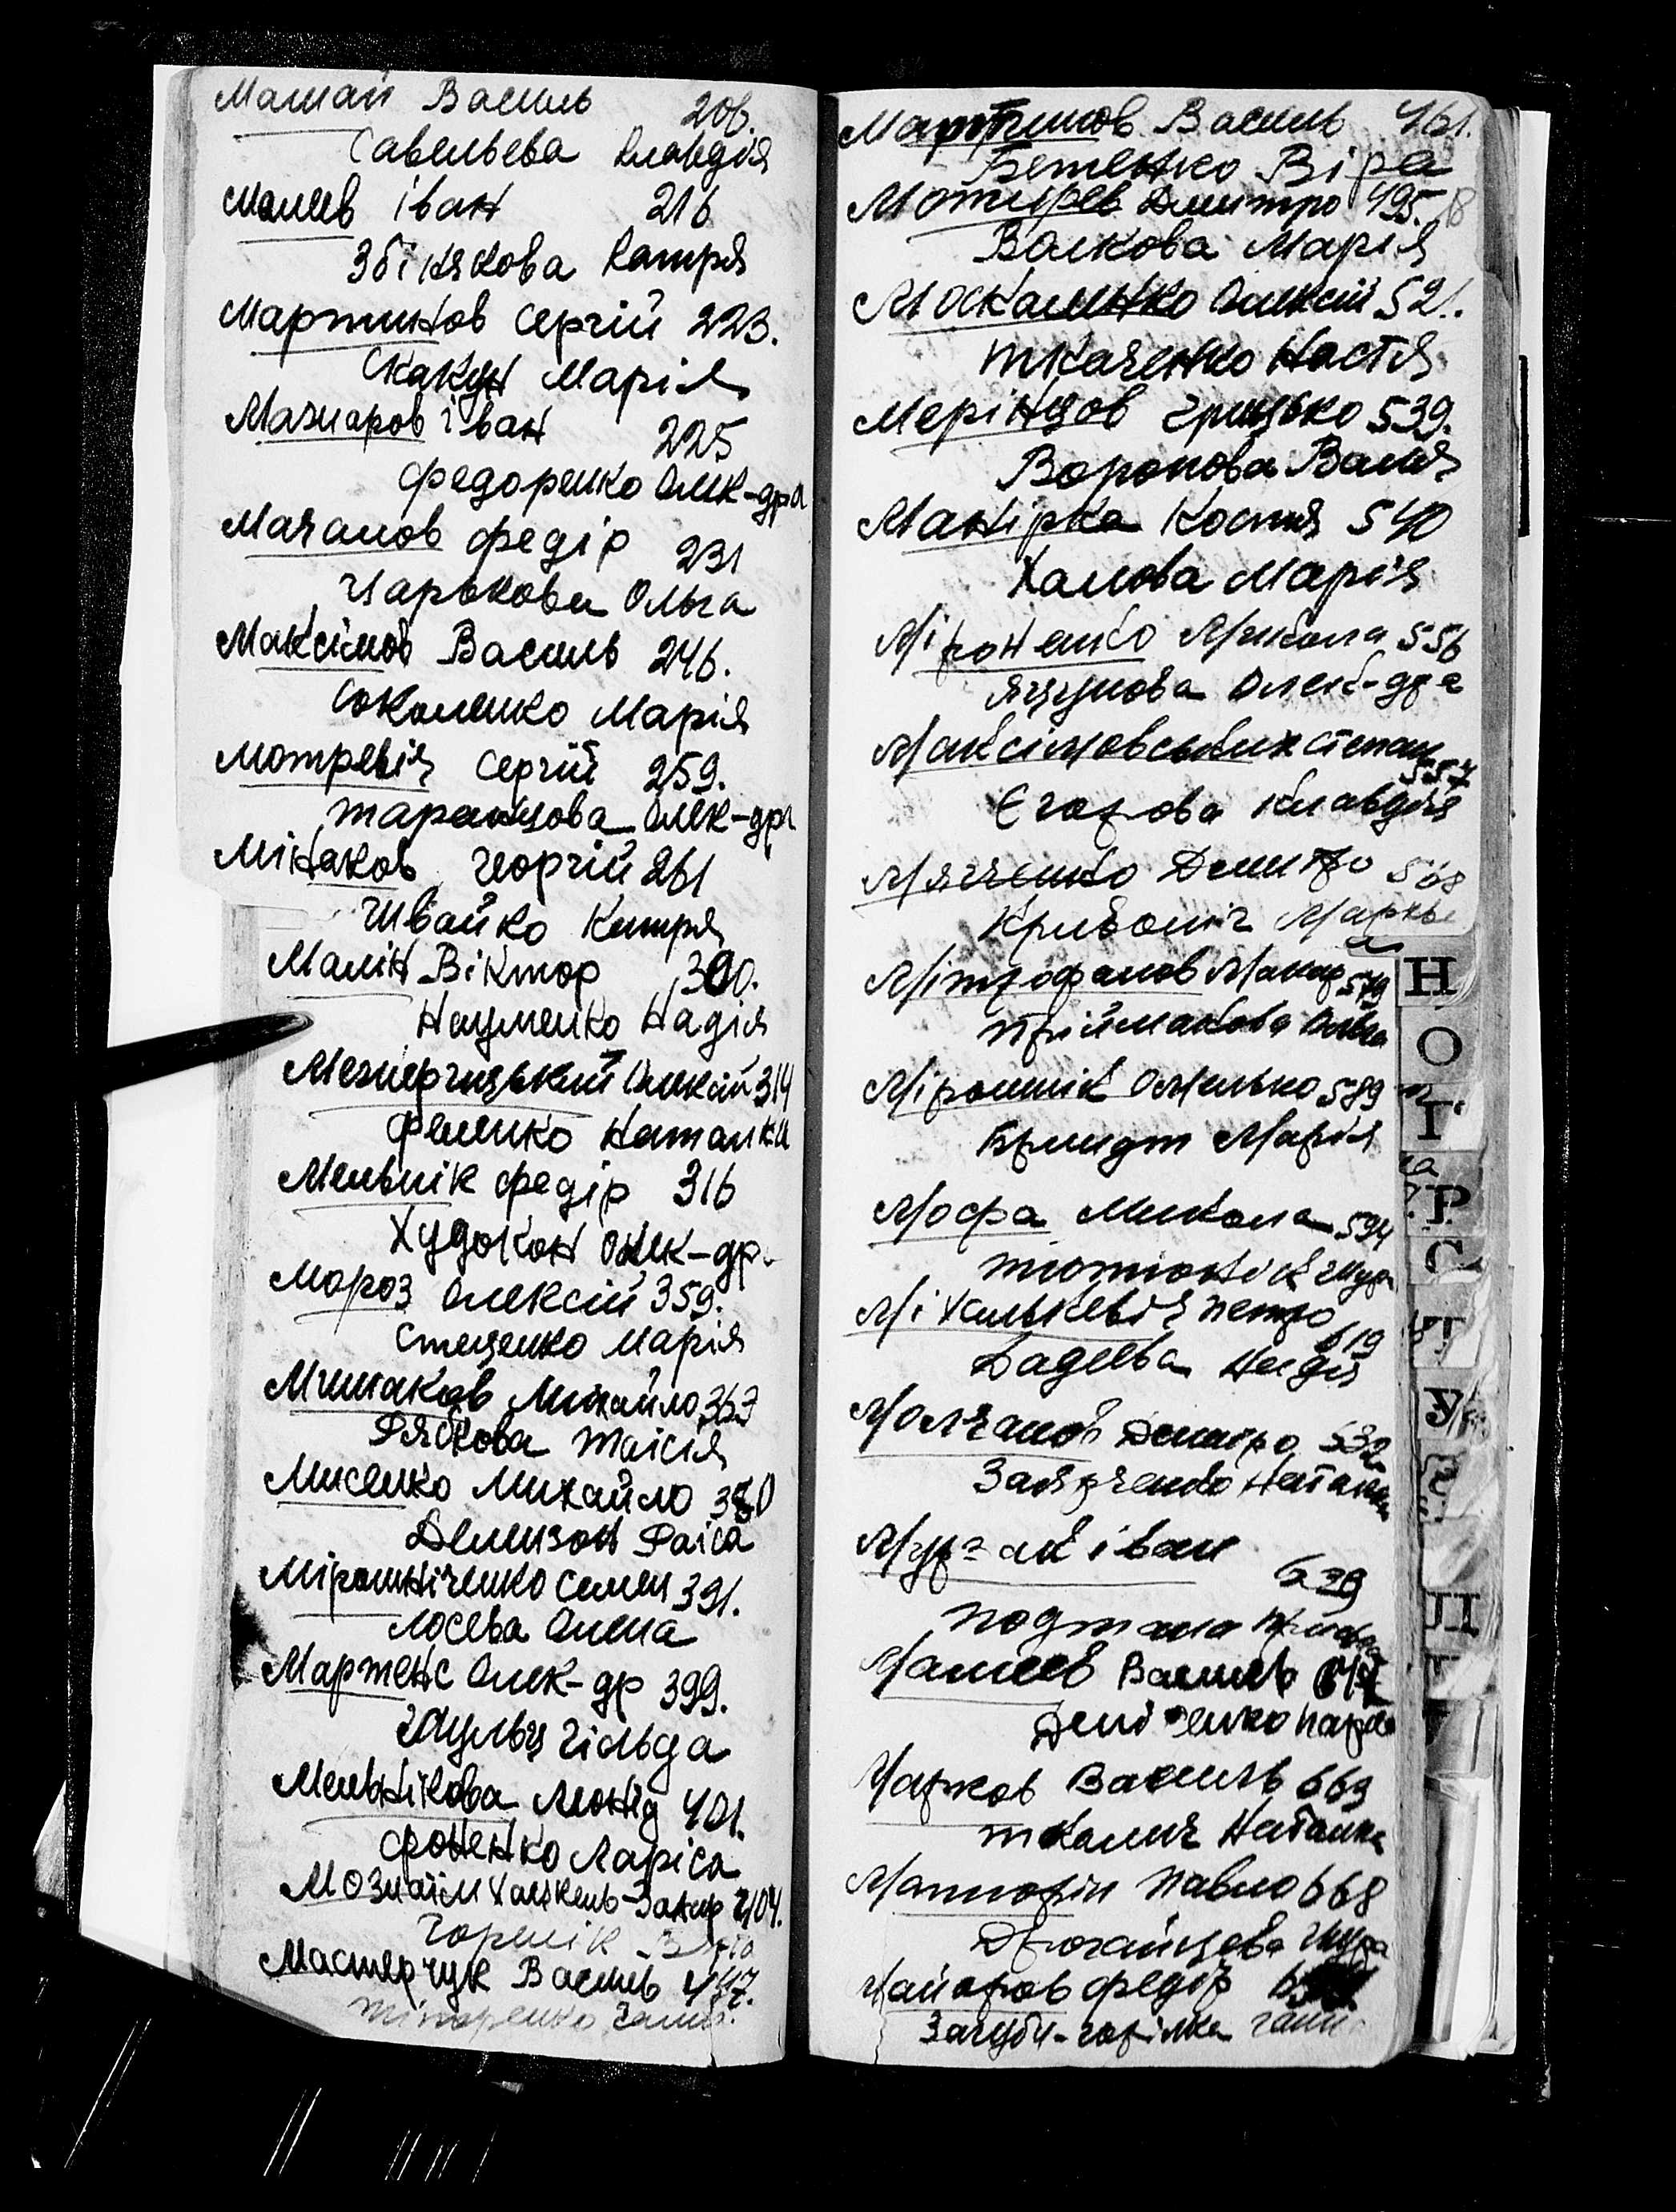 Машай Василь 206.
Савельева Клавдія
Малеев іван 216
Збінякова Катря
Мартинов Сергій 223.
Скакун Марія
Мазнаров іван 225
Федоренко Олек-дра
Мачанов Федір 231
Царькова Ольга
Максімов Василь 246.
Соколенко Марія
Мотревіч Сергій 259.
Таранцова Олек-дра
Мінаков Георгій 261
Швайко Катря
Малін Віктор 300.
Науменко Надія
Олексій 314
Фененко Наталка
Мельнік Федір 316
Худокон Олек-др.
Мороз Олексій 359.
Стеценко Марія
Минаков Михайло 363
Рябкова Таісія
Мисенко Михайло 380
Демизон Раіса
Мірошніченко Семен 391.
Лосева Олена
Мартенс Олек-др 399.
Шульц Гільда
Мельнікова Леонід 401.
Фоненко Ларіса
404.
Горнік Віра
Мастерчук Василь 447.
Галя
Мартинов Василь 461.
Бетенко Віра
Мотирев Дмитро 495.
Валкова Марія
Москаленко Олексій 521.
Ткаченко Настя
Мерінцов Грицько 539.
Воропова Валя
Манірка Костя 540
Халова Марія
Міроненко Микола 556
Яцунова Олек-дра
Максімовський Степан 557
Єгорова Клавдія
Мяченко Дмитро 568
Криволіч Марія
Мітрофанов Макар 579
Пріймакова Ольга
Мірошнік Омелько 589
Бринدт Марія
Мофа Микола 594
Тютюнік Шура
Міхалькевіч Петро 619
Бадеева Надія
Молчанов Дмитро 632
Захарченко Наталка
Мурзак іван 639
Подтана
Малеев Василь
Денісенко
Марков Василь 669
Ткалич Наталка
Манохін Павло 668
Шура
Майоров Федір
Загуби-горілка Ганна
Н
О
П
Р
С
Т
У